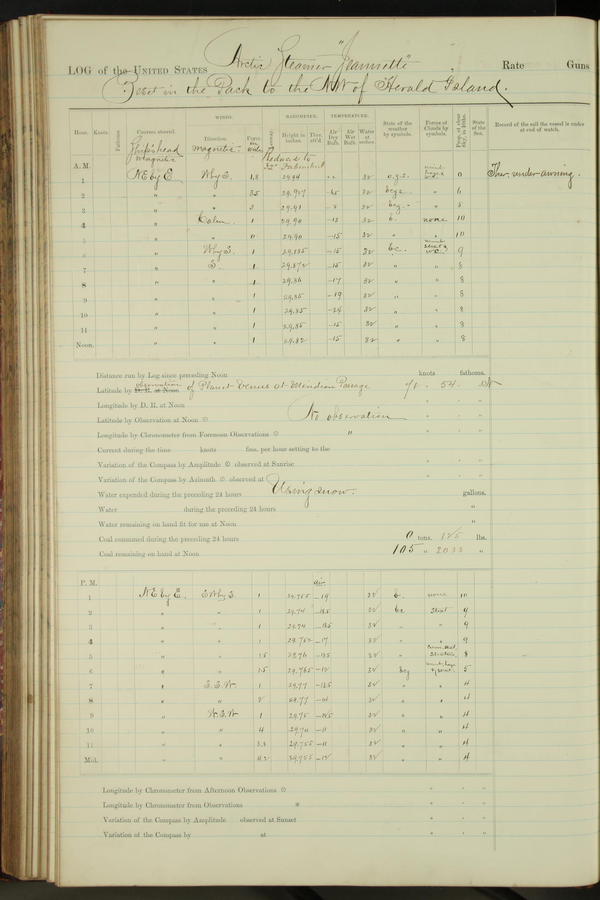 LOG of the UNITED STATES Arctic Steamer "Jeannette" Rate Guns
Beset in the Pack to the NW of Herald Island.
WINDS. BAROMETER. TEMPERATURE.
Hour. Knots. Fathoms. Courses steered. Direction. Force Leeway. Height in inches. Ther. att'd. Air Dry Bulb. Air Wet Bulb. Water at surface. State of the weather by symbols. Forms of Clouds by symbols. Prop. of clear sky, in 10ths. State of the Sea. Record of the sail the vessel is under at end of watch.
Ship's head magnetic magnetic. Reduced to
A. M.
1 NE by E W by S. 1.5 29.94 32 o.g.s. 0 Ther. under awning.
2 " " 29.927 32 6
3 " " 3 29.91 32 5
4 " Calm. 29.90 -15 32 b. none 10
" " 0 29.90 -15 32 " " 10
" W by S. 1 29.885 -15 32 bc. 9
7 " S. 1 29.872 -15 32 " " 8
8 " " 1 29.86 -17 32 " " 8
9 " " 1 29.85 -19 32 " " 8
10 " " 1 29.85 -24 32 " " 8
11 " " 1 29.85 -15 32 " " 8
Noon. " " 1 29.82 -15 32 " " 8
Distance run by Log since preceding Noon knots fathoms.
Latitude by D. R. at Noon observation of Planet Venus at Meridian Passage 71 54 N
Longitude by D. R. at Noon
Latitude by Observation at Noon No observation
Longitude by Chronometer from Forenoon Observations "
Current during the time knots fms. per hour setting to the
Variation of the Compass by Amplitude observed at Sunrise
Variation of the Compass by Azimuth observed at
Water expended during the preceding 24 hours Using snow. gallons.
Water during the preceding 24 hours "
Water remaining on hand fit for use at Noon "
Coal consumed during the preceding 24 hours 0 tons. 125 lbs.
Coal remaining on hand at Noon 105 " 2033 "
P. M.
1 NE by E. 1 29.755 -19 32 b. none 10
2 " " 1 29.74 -18.5 32 bc Strat 9
3 " " 1 29.74 -18.5 32 " " 9
4 " " 1 29.752 -17 32 " " 9
5 " " 1.5 29.76 -13.5 32 " 8
6 " " 1.5 29.765 -12 32 bcg 5
7 " S.S.W. 1 29.77 -12.5 32 " " 4
8 " " 2 29.77 32 " " 4
9 " 1 29.75 32 " " 4
10 " " 4 29.74 -11 32 " " 4
11 " " 3.3 29.755 -11 32 " " 4
Mid. " " 4.2 29.755 -12 32 " " 4
Longitude by Chronometer from Afternoon Observations
Longitude by Chronometer from Observations *
Variation of the Compass by Amplitude observed at Sunset
Variation of the Compass by at